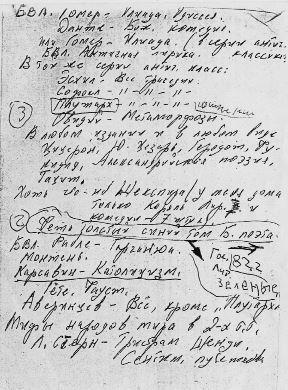 БВЛ. Гомер - Илиада, Одиссея.
Данте - Бож. комедия.
или Гомер - Илиада. в серии антич.
БВЛ. Античная лирика. классики.
В той же серии антич. класс:
Эсхил - Все трагедии.
Софокл - " - " - " -
3 Плутарх " - " - " -
Овидий - Метаморфозы.
В любом издании и в любом виде
Цицерон, Ю. Цезарь, Геродот, Фу-
кидид, Александрийская поэзия,
Тацит.
Хоть что-ни Шекспира / у меня дома
только Король Лир и
комедии в 7 т.
2 Фета толстый синий том Б. поэта.
БВЛ. Рабле - Гаргантюа.
Монтень.
Карсавин - Католицизм.
Гос
Лит
Зеленые
Гёте. Фауст.
Аверинцев - Всё, кроме "Плутарха
Мифы народов мира в 2-х т.
Л. Стерн - Тристрам Шенди.
Сентим. путеш